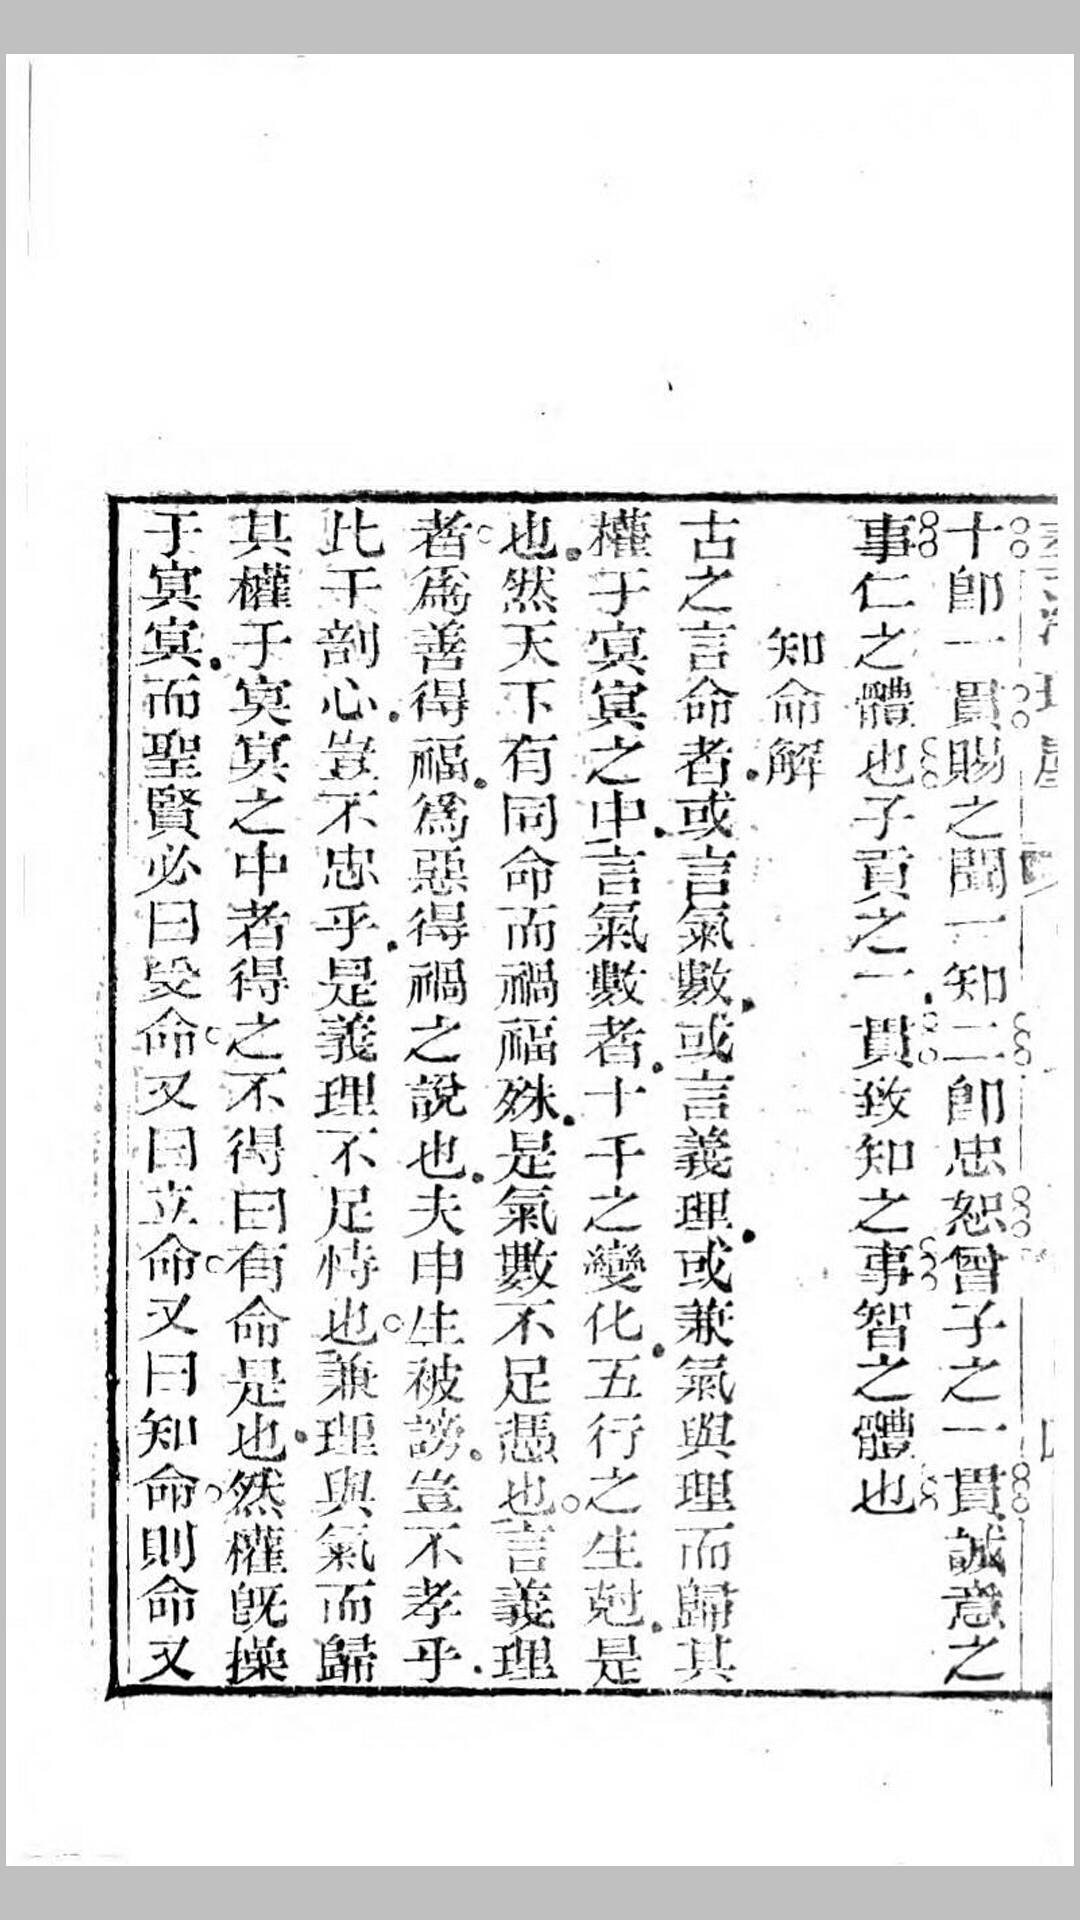 十卽一貫賜之聞一知二卽忠恕曾子之一貫誠意之
事仁之體也子貢之一貫致知之事智之體也
知命解
古之言命者或言氣數或言義理或兼氣與理而歸其
權于冥冥之中言氣數者十干之變化五行之生尅是
也然天下有同命而禍福殊是氣數不足憑也言義理
者爲善得福爲惡得禍之說也夫申生被謗豈不孝乎
比干剖心豈不忠乎是義理不足恃也兼理與氣而歸
其權于冥冥之中者得之不得曰有命是也然權旣操
于冥冥而聖賢必曰受命又曰立命又曰知命則命又